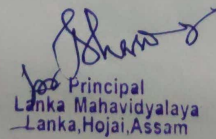 Principal
Lanka Mahavidyalaya
Lanka,Hojai,Assam